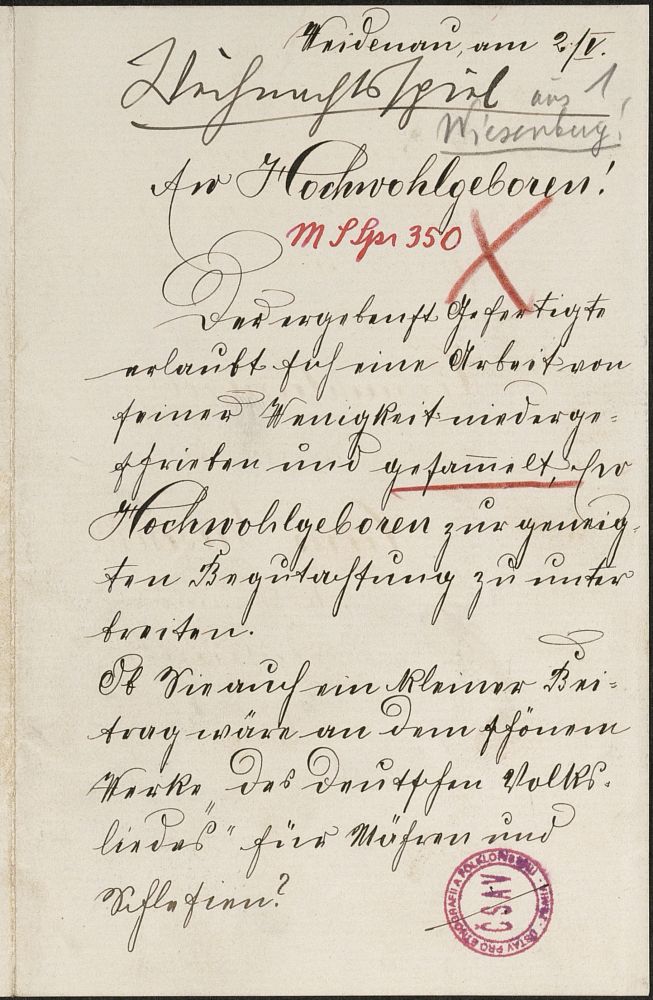 Weidenau, am 2/V.
Weihnachtsspiel aus 1,
Wiesenberg!
Ew Hochwohlgeboren!
350
Der ergebenst Gefertigte
erlaubt sich eine Arbeit von
seiner Wenigkeit niederge=
schrieben und gesam̄elt, Ew
Hochwohlgeboren zur geneig-
ten Begutachtung zu unter
breiten.
Ob Sie auch ein kleiner Bei=
trag wäre an dem schönem
Werke „Des deutschen Volks-
liedes" für Mähren und
Schlesien?
ÚSTAV PRO ETNOGRAFII A FOLKLORISTIKU
ČSAV